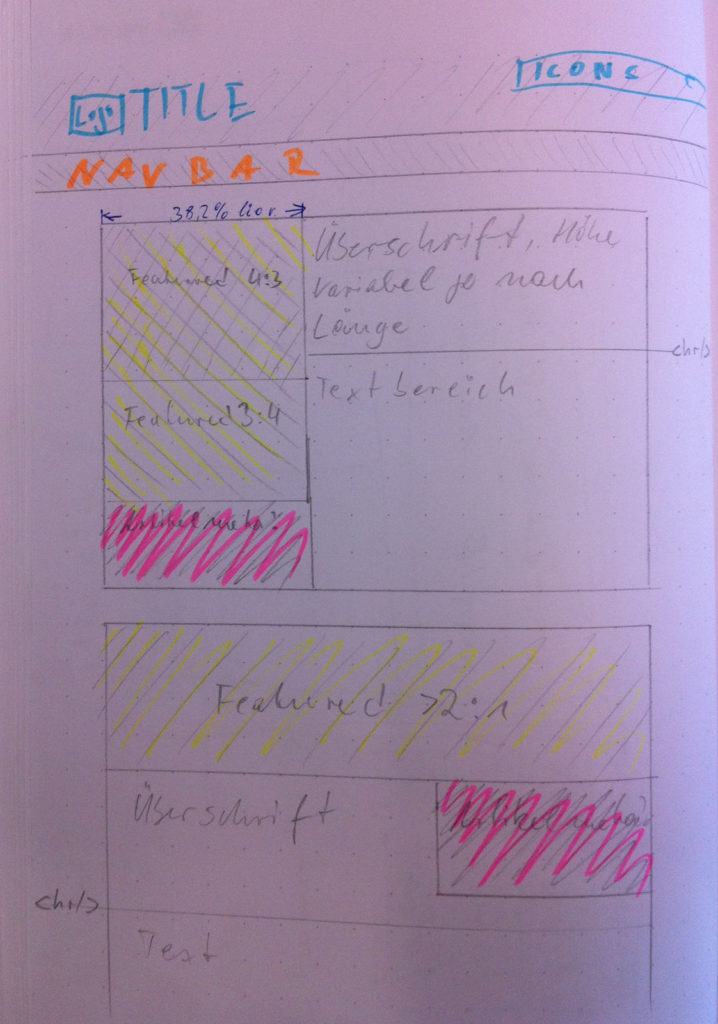 ICONS
Logo TITLE
NAVBAR
38,2% hor.
Featured 4:3
Überschrift, Höhe
variabel je nach
Länge
<hr/>
Textbereich
Featured 3:4
Artikel meta
Featured >2:1
Überschrift
Artikel meta
<hr/>
Text